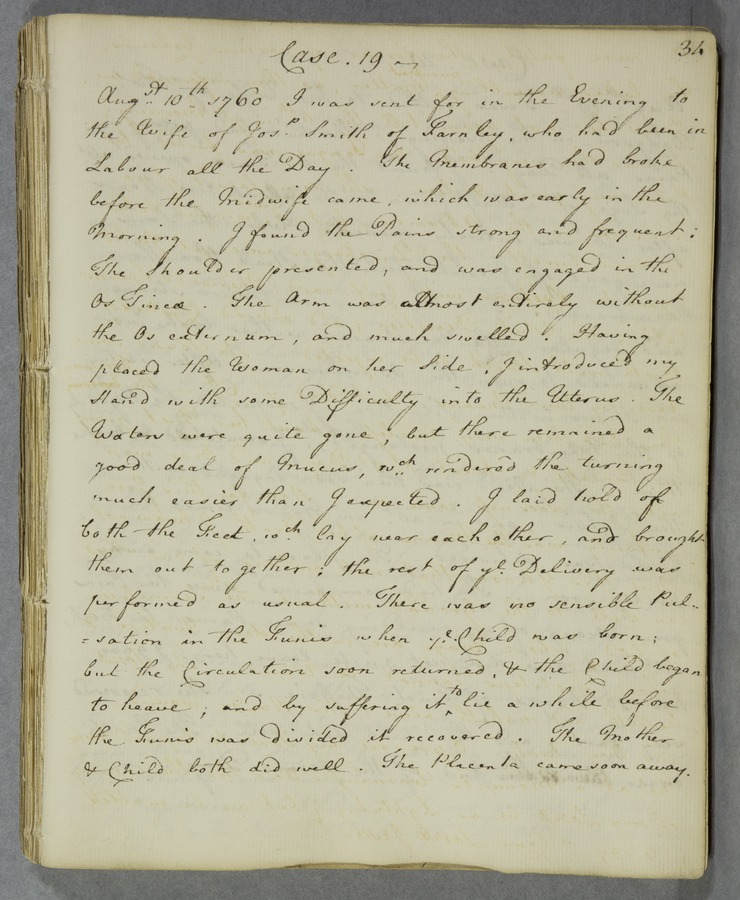 Case. 19
34
Augst 10th 1760 I was sent for in the Evening to
the Wife of Josp. Smith of Farnley, who had been in
Labour all the Day. The Membranes had broke
before the Midwife came, which was early in the
Morning. I found the Pains strong and frequent:
The Shoulder presented, and was engaged in the
Os Tincæ. The Arm was allmost entirely without
the Os externum, and much swelled. Having
placed the Woman on her Side, I introduced my
Hand with some Difficulty into the Uterus. The
Waters were quite gone, but there remained a
good deal of Mucus, wch. rendered the turning
much easier than I expected. I laid hold of
both the Feet, wch. lay near each other, and brought
them out together; the rest of ye. Delivery was
performed as usual. There was no sensible Pul-
=sation in the Funis when ye. Child was born;
but the Circulation soon returned, & the Child began
to heave; and by suffering it to lie a while before
the Funis was divided it recovered. The Mother
& Child both did well. The Placenta came soon away.